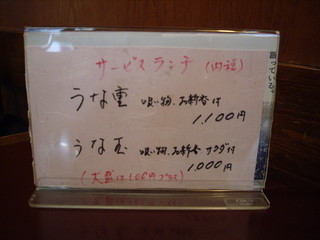 サービスランチ (内税)
うな重 吸い物、お新香付
1,100円
うな玉 吸い物、お新香 サラダ付
1,000円
(大盛は100円プラス)
扱っている。